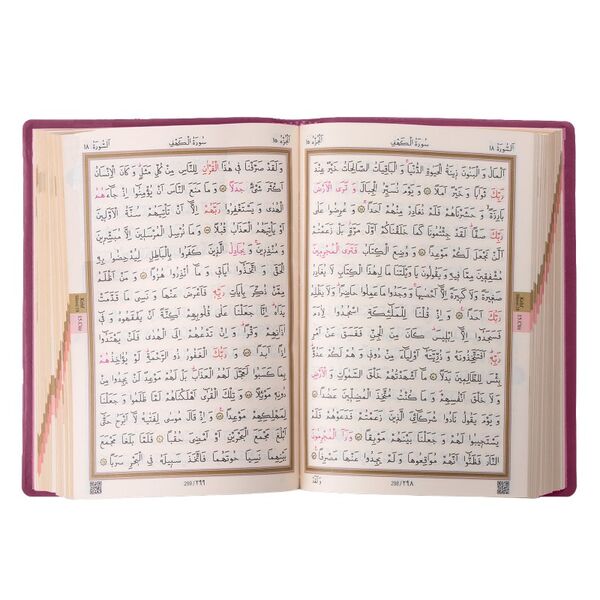 اَلسُّورَةُ ١٨
سُورَةُ الْكَهْفِ
اَلْجُزْءُ ١٥
اَلْمَالُ وَ الْبَنُونَ زٖينَةُ الْحَيٰوةِ الدُّنْيَا وَ الْبَاقِيَاتُ الصَّالِحَاتُ خَيْرٌ عِنْدَ
رَبِّكَ ثَوَابًا وَ خَيْرٌ اَمَلًا وَ يَوْمَ نُسَيِّرُ الْجِبَالَ وَ تَرَى الْاَرْضَ
بَارِزَةً وَ حَشَرْنَاهُمْ فَلَمْ نُغَادِرْ مِنْهُمْ اَحَدًا وَ عُرِضُوا عَلٰى
رَبِّكَ صَفًّا لَقَدْ جِئْتُمُونَا كَمَا خَلَقْنَاكُمْ اَوَّلَ مَرَّةٍ بَلْ زَعَمْتُمْ
اَلَّنْ نَجْعَلَ لَكُمْ مَوْعِدًا وَ وُضِعَ الْكِتَابُ فَتَرَى الْمُجْرِمٖينَ
مُشْفِقٖينَ مِمَّا فٖيهِ وَ يَقُولُونَ يَا وَيْلَتَنَا مَالِ هٰذَا الْكِتَابِ لَا يُغَادِرُ
صَغٖيرَةً وَ لَا كَبٖيرَةً اِلَّا اَحْصٰيهَا وَ وَجَدُوا مَا عَمِلُوا حَاضِرًا وَ لَا يَظْلِمُ
رَبُّكَ اَحَدًا وَ اِذْ قُلْنَا لِلْمَلٰٓئِكَةِ اسْجُدُوا لِاٰدَمَ
فَسَجَدُوا اِلَّا اِبْلٖيسَ كَانَ مِنَ الْجِنِّ فَفَسَقَ عَنْ اَمْرِ
رَبِّهٖ اَفَتَتَّخِذُونَهُ وَ ذُرِّيَّتَهُ اَوْلِيَاءَ مِنْ دُونٖى وَ هُمْ لَكُمْ عَدُوٌّ
بِئْسَ لِلظَّالِمٖينَ بَدَلًا مَا اَشْهَدْتُهُمْ خَلْقَ السَّمٰوَاتِ وَ الْاَرْضِ
وَ لَا خَلْقَ اَنْفُسِهِمْ وَ مَا كُنْتُ مُتَّخِذَ الْمُضِلّٖينَ عَضُدًا
وَ يَوْمَ يَقُولُ نَادُوا شُرَكَائِىَ الَّذٖينَ زَعَمْتُمْ فَدَعَوْهُمْ فَلَمْ
يَسْتَجٖيبُوا لَهُمْ وَ جَعَلْنَا بَيْنَهُمْ مَوْبِقًا وَ رَاَ الْمُجْرِمُونَ
النَّارَ فَظَنُّوا اَنَّهُمْ مُوَاقِعُوهَا وَ لَمْ يَجِدُوا عَنْهَا مَصْرِفًا
298/٢٩٨
وَ لَقَدْ
Kehf
15.Cüz
اَلْجُزْءُ ١٥
سُورَةُ الْكَهْفِ
اَلسُّورَةُ ١٨
وَ لَقَدْ صَرَّفْنَا فٖى هٰذَا الْقُرْاٰنِ لِلنَّاسِ مِنْ كُلِّ مَثَلٍ وَ كَانَ الْاِنْسَانُ
اَكْثَرَ شَىْءٍ جَدَلًا وَ مَا مَنَعَ النَّاسَ اَنْ يُؤْمِنُوا اِذْ جَاءَهُمُ
الْهُدٰى وَ يَسْتَغْفِرُوا رَبَّهُمْ اِلَّا اَنْ تَاْتِيَهُمْ سُنَّةُ الْاَوَّلٖينَ
اَوْ يَاْتِيَهُمُ الْعَذَابُ قُبُلًا وَ مَا نُرْسِلُ الْمُرْسَلٖينَ اِلَّا مُبَشِّرٖينَ
وَ مُنْذِرٖينَ وَ يُجَادِلُ الَّذٖينَ كَفَرُوا بِالْبَاطِلِ لِيُدْحِضُوا بِهِ
الْحَقَّ وَ اتَّخَذُوا اٰيَاتٖى وَ مَا اُنْذِرُوا هُزُوًا وَ مَنْ اَظْلَمُ
مِمَّنْ ذُكِّرَ بِاٰيَاتِ رَبِّهٖ فَاَعْرَضَ عَنْهَا وَ نَسِىَ مَا قَدَّمَتْ
يَدَاهُ اِنَّا جَعَلْنَا عَلٰى قُلُوبِهِمْ اَكِنَّةً اَنْ يَفْقَهُوهُ وَ فٖى
اٰذَانِهِمْ وَقْرًا وَ اِنْ تَدْعُهُمْ اِلَى الْهُدٰى فَلَنْ يَهْتَدُوا
اِذًا اَبَدًا وَ رَبُّكَ الْغَفُورُ ذُو الرَّحْمَةِ لَوْ يُؤَاخِذُهُمْ
بِمَا كَسَبُوا لَعَجَّلَ لَهُمُ الْعَذَابَ بَلْ لَهُمْ مَوْعِدٌ لَنْ يَجِدُوا مِنْ
دُونِهٖ مَوْئِلًا وَ تِلْكَ الْقُرٰى اَهْلَكْنَاهُمْ لَمَّا ظَلَمُوا وَ جَعَلْنَا
لِمَهْلِكِهِمْ مَوْعِدًا وَ اِذْ قَالَ مُوسٰى لِفَتٰيهُ لَا اَبْرَحُ حَتّٰى
اَبْلُغَ مَجْمَعَ الْبَحْرَيْنِ اَوْ اَمْضِىَ حُقُبًا فَلَمَّا بَلَغَا مَجْمَعَ
بَيْنِهِمَا نَسِيَا حُوتَهُمَا فَاتَّخَذَ سَبٖيلَهُ فِى الْبَحْرِ سَرَبًا
299/٢٩٩
Kehf
15.Cüz